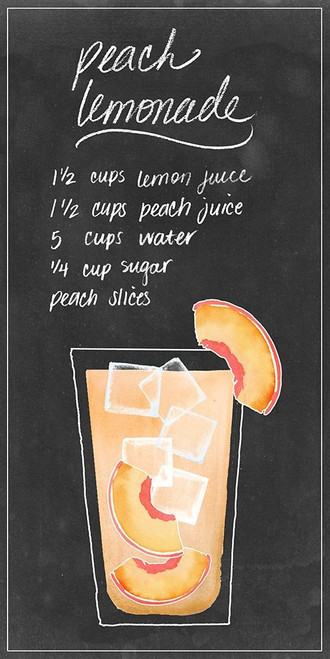 peach
lemonade
1 1/2 cups lemon juice
1 1/2 cups peach juice
5 cups water
1/4 cup sugar
peach slices